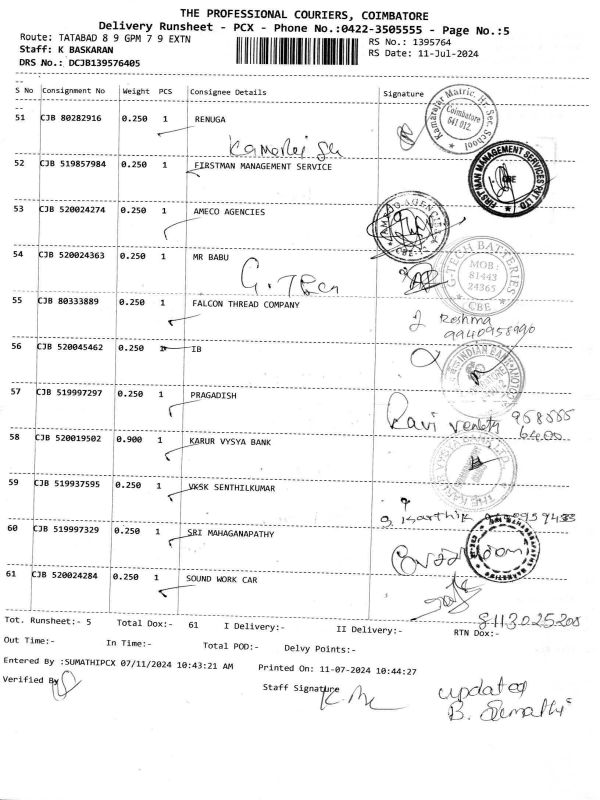 THE PROFESSIONAL COURIERS, COIMBATORE
Delivery Runsheet - PCX - Phone No.:0422-3505555 - Page No.:5
Route: TATABAD 8 9 GPM 7 9 EXTN
RS No.: 1395764
Staff: K BASKARAN
RS Date: 11-Jul-2024
DRS No.: DCJB139576405
S No Consignment No Weight PCS Consignee Details Signature
51 CJB 80282916 0.250 1 RENUGA
Kamarajar Matric. Hr. Sec. School
Coimbatore
641 012.
52 CJB 519857984 0.250 1 FIRSTMAN MANAGEMENT SERVICE
FIRSTMAN MANAGEMENT SERVICES PVT LTD
CBE
53 CJB 520024274 0.250 1 AMECO AGENCIES
CBE
54 CJB 520024363 0.250 1 MR BABU
G.Tech
G-TECH BATTERIES
MOB:
81443
24365
CBE
55 CJB 80333889 0.250 1 FALCON THREAD COMPANY
Reshma
9940958990
56 CJB 520045462 0.250 1 IB
INDIAN BANK
57 CJB 519997297 0.250 1 PRAGADISH
Ravi
58 CJB 520019502 0.900 1 KARUR VYSYA BANK
59 CJB 519937595 0.250 1 VKSK SENTHILKUMAR
Karthik
60 CJB 519997329 0.250 1 SRI MAHAGANAPATHY
61 CJB 520024284 0.250 1 SOUND WORK CAR
8113025200
Tot. Runsheet:- 5 Total Dox:- 61 I Delivery:- II Delivery:- RTN Dox:-
Out Time:- In Time:- Total POD:- Delvy Points:-
Entered By :SUMATHIPCX 07/11/2024 10:43:21 AM Printed On: 11-07-2024 10:44:27
Verified By
Staff Signature
updated
B. Sumathi